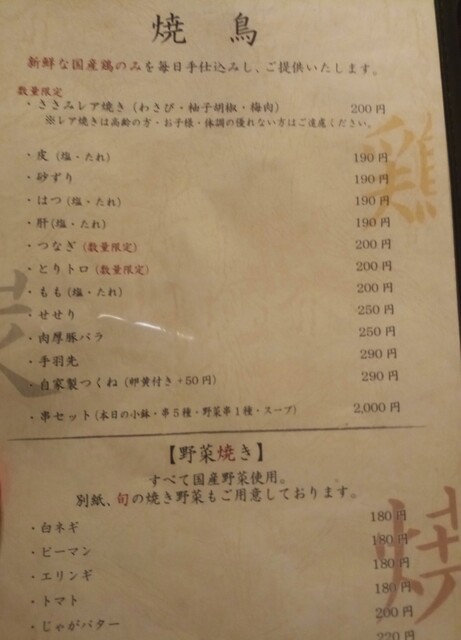 焼鳥
新鮮な国産鶏のみを毎日手仕込みし、ご提供いたします。
数量限定
・ささみレア焼き（わさび・柚子胡椒・梅肉） 200円
※レア焼きは高齢の方・お子様・体調の優れない方はご遠慮ください。
・皮（塩・たれ） 190円
・砂ずり 190円
・はつ（塩・たれ） 190円
・肝（塩・たれ） 190円
・つなぎ（数量限定） 200円
・とりトロ（数量限定） 200円
・もも（塩・たれ） 200円
・せせり 250円
・肉厚豚バラ 250円
・手羽先 290円
・自家製つくね（卵黄付き+50円） 290円
・串セット（本日の小鉢・串5種・野菜串1種・スープ） 2,000円
【野菜焼き】
すべて国産野菜使用。
別紙、旬の焼き野菜もご用意しております。
・白ネギ 180円
・ピーマン 180円
・エリンギ 180円
・トマト 180円
・じゃがバター 200円
220円
鶏
菜
焼